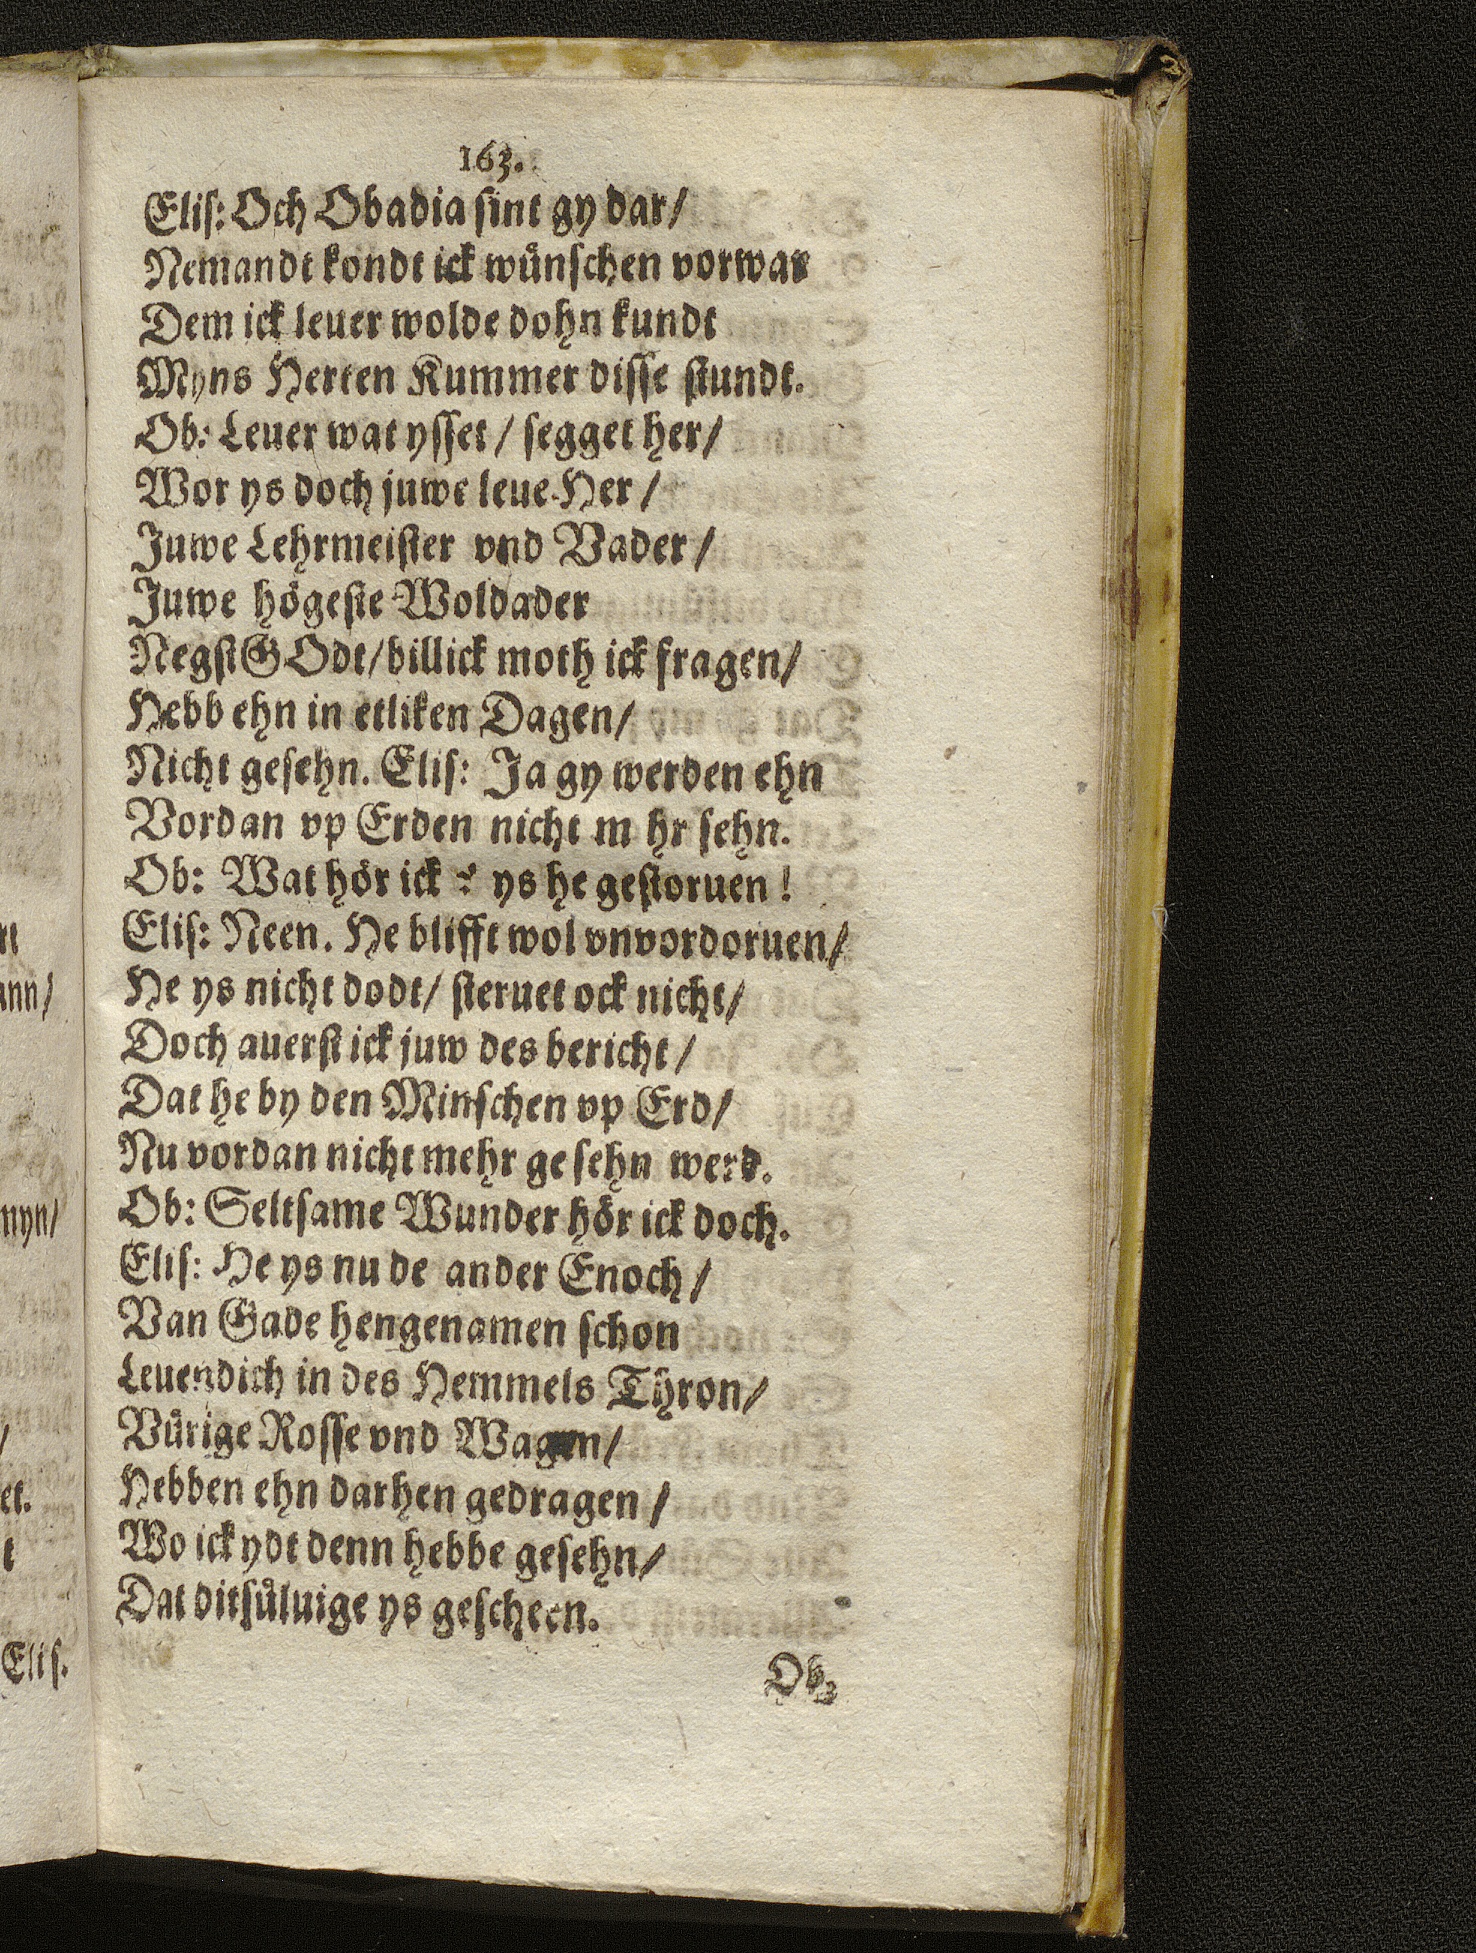 163.
Eliſ: Och Obadia ſint gy dar/
Nemandt kondt ick wuͤnſchen vorwar
Dem ick leuer wolde dohn kundt
Myns Herten Kummer diſſe ſtundt.
Ob: Leuer wat yſſet / ſegget her/
Wor ys doch juwe leue Her /
Juwe Lehrmeiſter vnd Vader /
Juwe hoͤgeſte Woldader
Negſt GOdt/ billick moth ick fragen/
Hebb ehn in etliken Dagen/
Nicht geſehn. Eliſ: Ja gy werden ehn
Vordan vp Erden nicht m hr ſehn.
Ob: Wat hoͤr ick ? ys he geſtoruen !
Eliſ: Neen. He blifft wol vnvordoruen/
He ys nicht dodt/ ſteruet ock nicht/
Doch auerſt ick juw des bericht /
Dat he by den Minſchen vp Erd/
Nu vordan nicht mehr geſehn werd.
Ob: Seltſame Wunder hoͤr ick doch.
Eliſ: He ys nu de ander Enoch /
Van Gade hengenamen ſchon
Leuendich in des Hemmels Thron/
Vuͤrige Roſſe vnd Wagen/
Hebben ehn darhen gedragen /
Wo ick ydt denn hebbe geſehn/
Dat ditſuͤluige ys geſcheen.
Ob:
nn/
nyn/
et.
t
Eliſ.